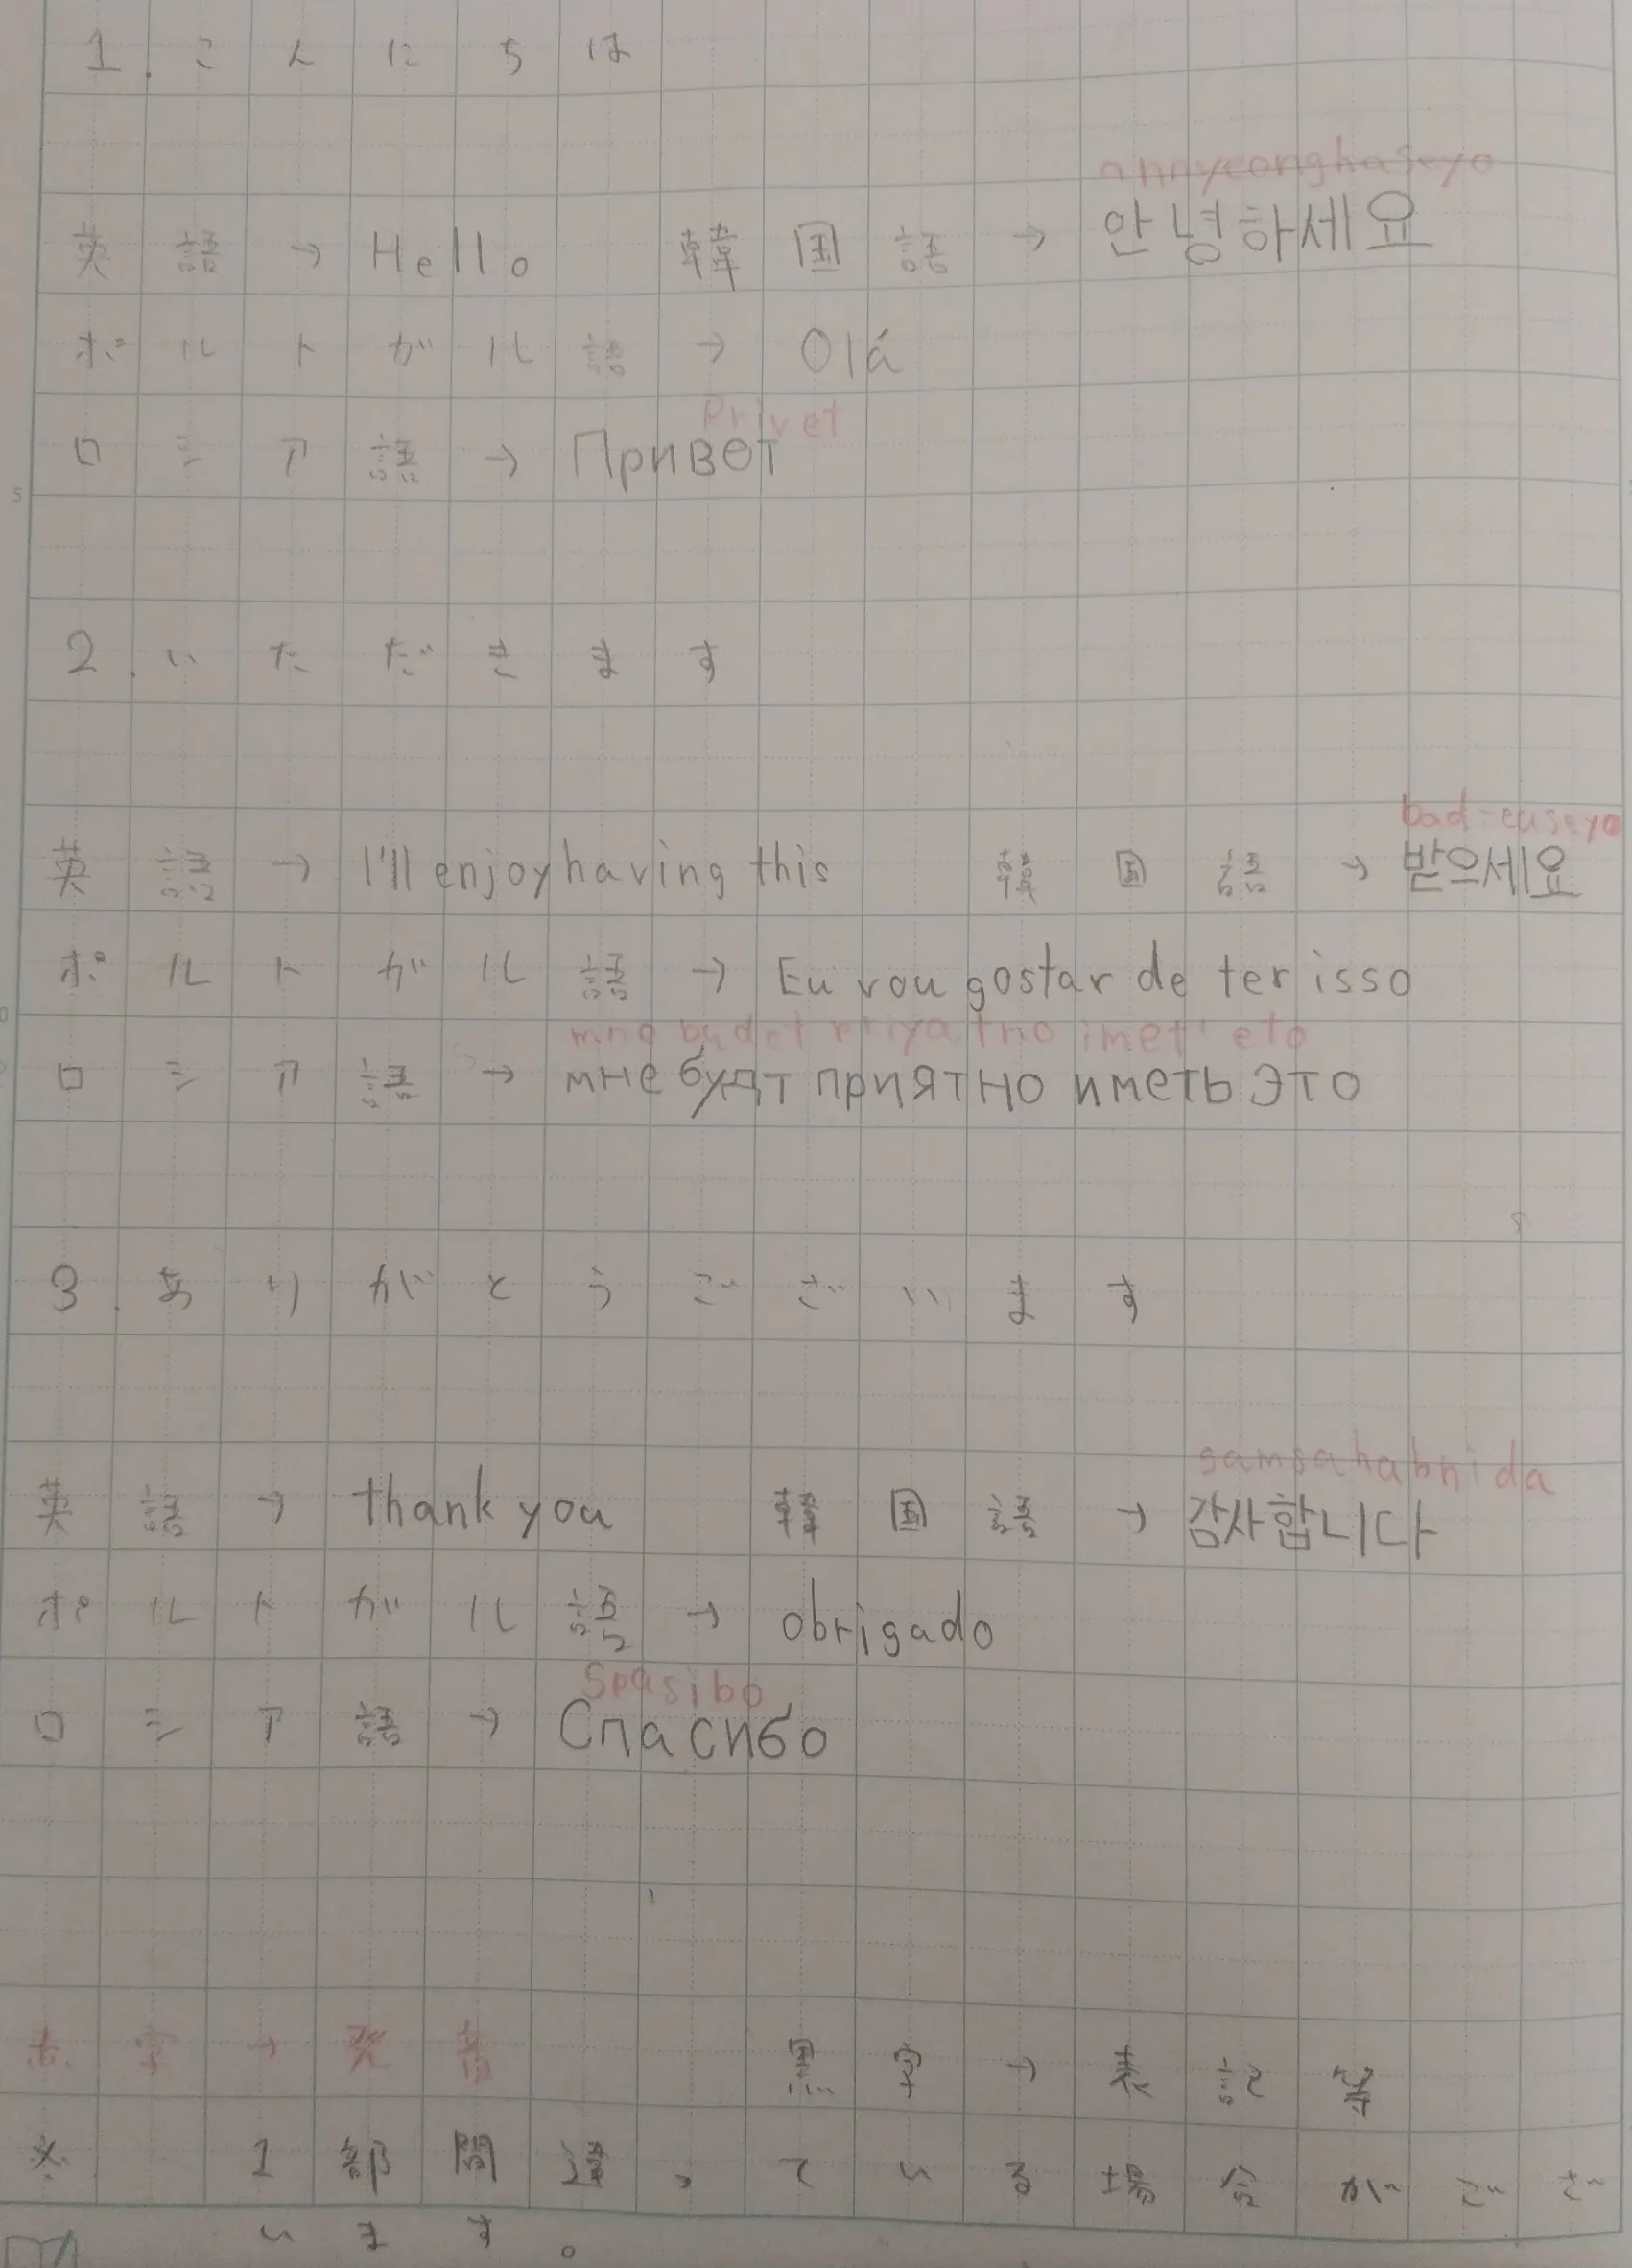 1.こんにちは
annyeonghaseyo
英語→Hello 韓国語→안녕하세요
ポルトガル語→Olá
Privet
ロシア語→Привет
2.いただきます
bad-euseyo
英語→I'll enjoy having this 韓国語→받으세요
ポルトガル語→Eu vou gostar de ter isso
mne budet priyatno imet' eto
ロシア語→мне будт приятно иметь это
3.ありがとうございます
gamsahabnida
英語→thank you 韓国語→감사합니다
ポルトガル語→obrigado
Spasibo
ロシア語→Спасибо
赤字→発音 黒字→表記等
※ 1部間違っている場合がござ
います。